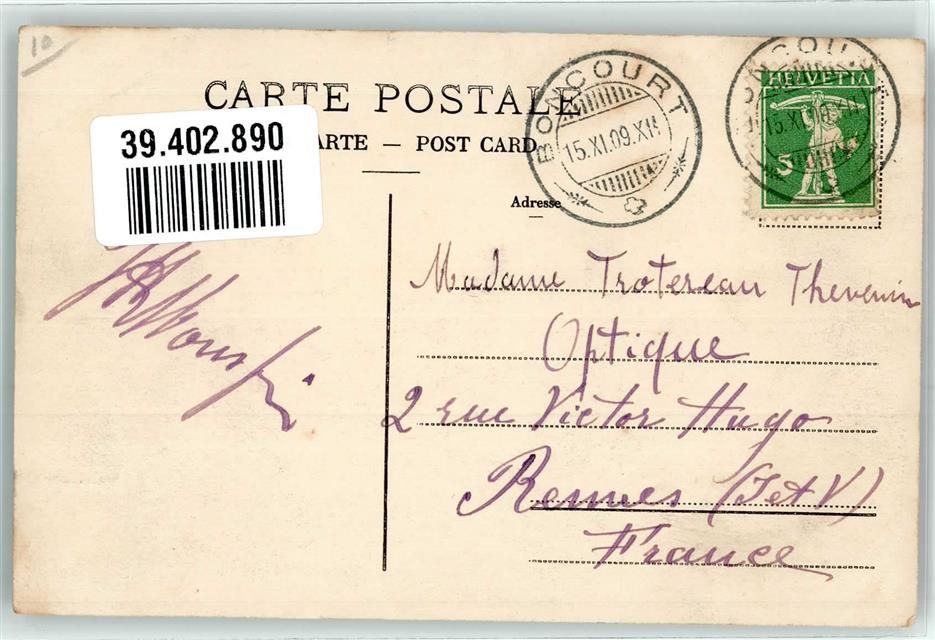 10
CARTE POSTALE
39.402.890
ARTE — POST CARD
Adresse
BONCOURT
15.XI.09.XII
HELVETIA
5
Madame Trotereau Thevenin
Optique
2 rue Victor Hugo
Rennes (I et V)
France